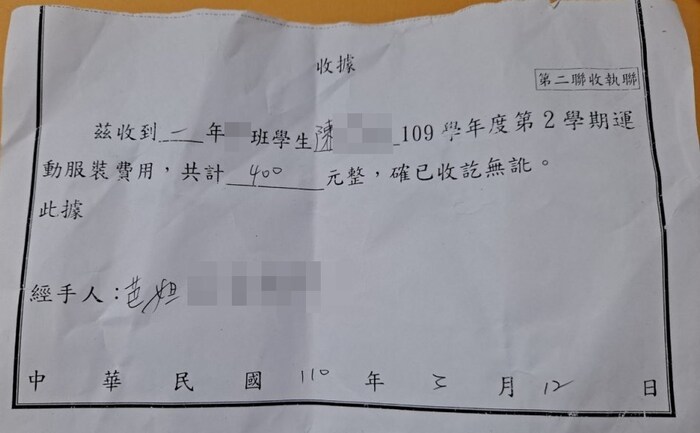 收據
第二聯收執聯
茲收到一年 班學生陳 109學年度第2學期運
動服裝費用，共計400元整，確已收訖無訛。
此據
經手人：芭妲
中華民國110年3月12日